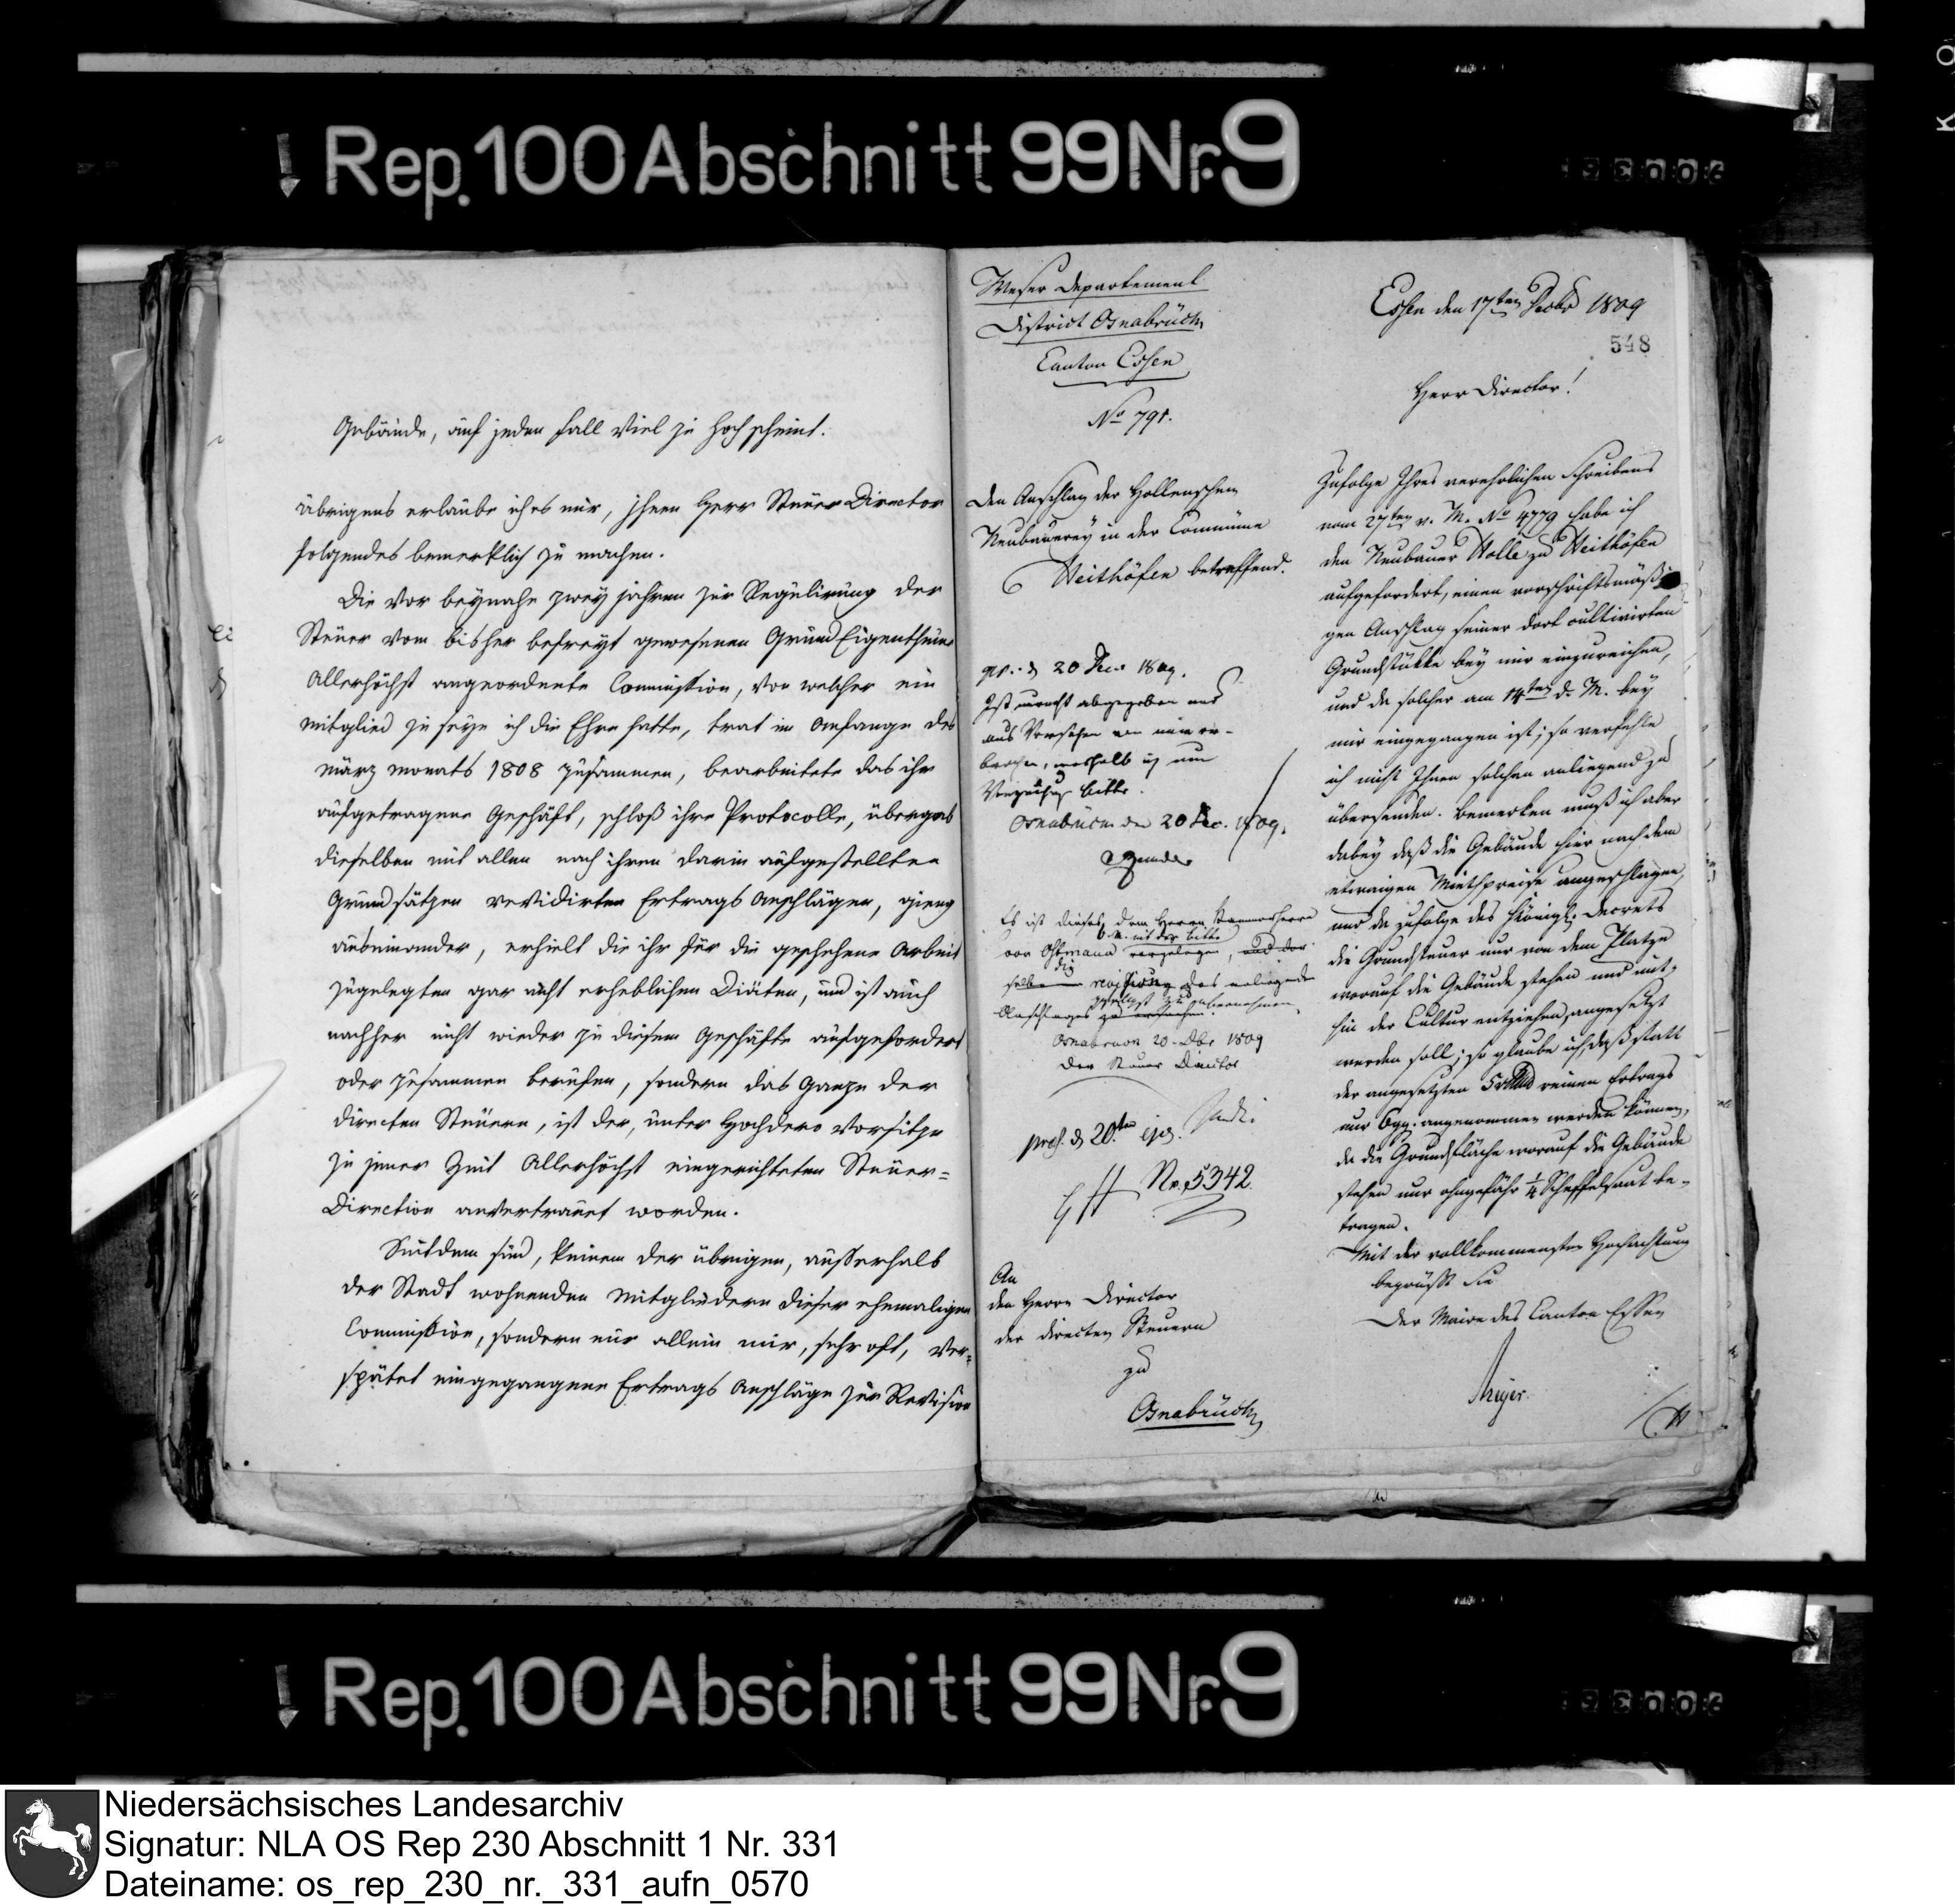 Rep. 100 Abschnitt 99 Nr. 9
Gebäude, auf jeden fall viel zu hoch scheint.
übrigens erlaube ich es mir, ihnen Herr Steuer Director
folgendes bemerklich zu machen.
Die vor beynahe zwey jahren zur Regulirung der
Steuer vom bisher befreyt gewesenen Grund Eigenthum
Allerhöchst angeordnete Commission, von welcher ein
mitglied zu seyn ich die Ehre hatte, trat im Anfange des
märz monats 1808 zusammen, bearbeitete das ihr
aufgetragene Geschäft, schloß ihre Protocolle, übergab
dieselben mit allen nach ihren darin aufgestellten
Grundsätzen revidirten Ertrags Anschlägen, gieng
auseinander, erhielt die ihr für die geschehene Arbeit
zugelegten gar nicht erheblichen Diäten, und ist auch
nachher nicht wieder zu diesem Geschäfte aufgefordert
oder zusammen berufen, sondern das Ganze der
directen Steuern, ist der, unter Hochdero Vorsitze
zu jener Zeit Allerhöchst eingerichteten Steuer-
Direction anvertrauet worden.
Seitdem sind, keinem der übrigen, ausserhalb
der Stadt wohnenden Mitgliedern dieser ehemaligen
Commission, sondern nur allein mir, sehr oft, ver-
spätet eingegangene Ertrags Anschläge zur Revision
Weser Departement
District Osnabrück
Canton Essen
No 791.
Den Anschlag der Hollenschen
Neubauerey in der Commüne
Weithöfen betreffend.
pr. d 20 Dec. 1809.
Ist unrecht abgegeben und
aus Versehen von mir er-
brochen, weshalb ich um
Verzeihung bitte.
Osnabrück den 20 Dec. 1809.
Es ist dieses dem Herrn Kammerherrn
von Ostmann vorgelegen, und der
mit der bitte
die revision des anliegenden
Anschlages zu übernehmen.
Osnabruck 20 Dbr 1809
Der Steuer Director
pres. d 20ten ejd.
Nr. 5342.
An
den Herrn Director
der directen Steuern
zu
Osnabrück
Essen den 17ten Decbr 1809
548
Herr Director!
Zufolge Ihres verehrlichen Schreibens
vom 27ten v. M. No 4779 habe ich
den Neubauer Holle zu Weithöfen
aufgefordert, einen vorschriftsmäßi
gen Anschlag seiner dort cultivirten
Grundstükke bey mir einzureichen,
und da solcher am 14ten d. M. bey
mir eingegangen ist; so verfehle
ich nicht Ihnen solchen anliegend zu
übersenden. Bemerken muß ich aber
dabey daß die Gebäude hier nach dem
etwaigen Miethpreise angeschlagen,
und da zufolge des Königl. Decrets
die Grundsteuer nur von dem Platze
worauf die Gebäude stehen und mit-
hin der Cultur entziehen, angesetzt
werden soll; so glaube ich, daß statt
der angesetzten 5 reinen Ertrags
nur 6 ggr. angenommen werden können,
da die Grundfläche worauf die Gebäude
stehen nur ohngefähr 1/4 Scheffelsaat be-
tragen.
Mit der vollkommensten Hochachtung
begrüßt Sie
Der Maire des Canton Essen
Meyer.
Rep. 100 Abschnitt 99 Nr. 9
Niedersächsisches Landesarchiv
Signatur: NLA OS Rep 230 Abschnitt 1 Nr. 331
Dateiname: os_rep_230_nr._331_aufn_0570